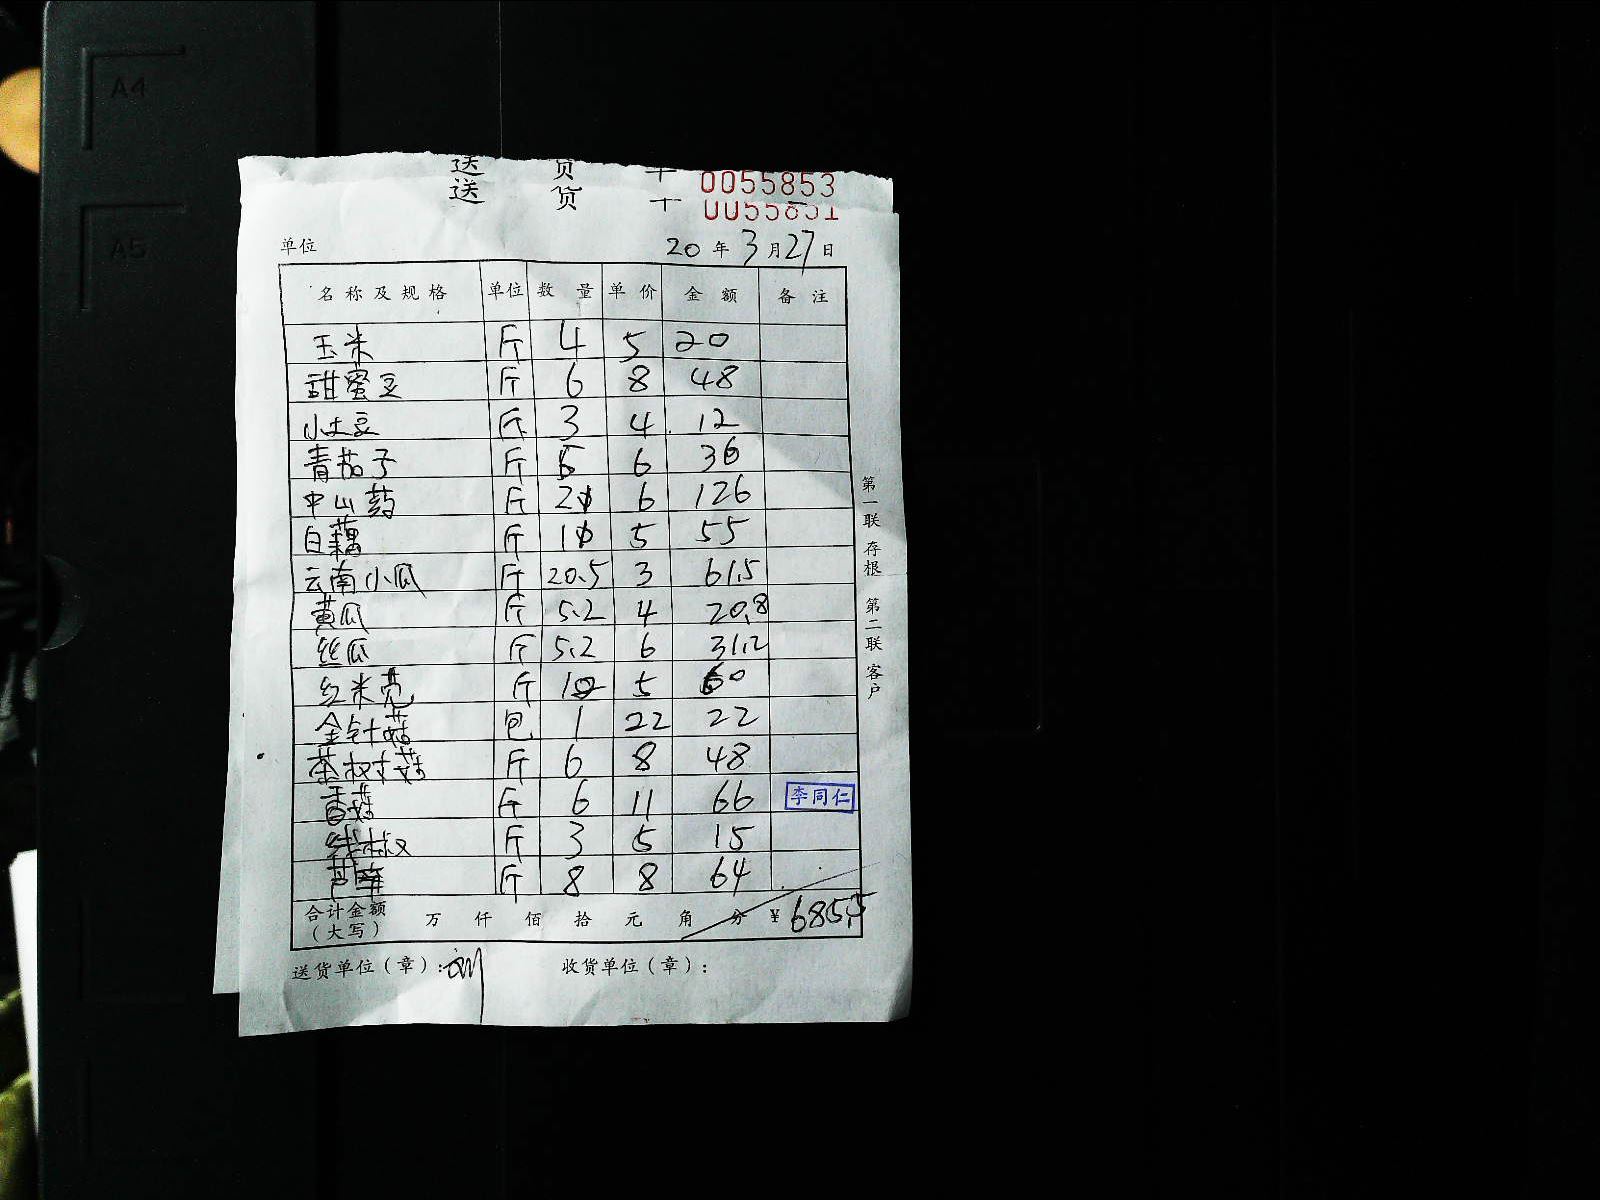 A4
A5
送 货 单
0055853
送 货 单
0055851
单位
20 年 3 月 27 日
名称及规格 单位 数量 单价 金额 备注
玉米 斤 4 5 20
甜蜜豆 斤 6 8 48
小土豆 斤 3 4 12
青茄子 斤 6 6 36
中山药 斤 21 6 126
白藕 斤 11 5 55
云南小瓜 斤 20.5 3 61.5
黄瓜 斤 5.2 4 20.8
丝瓜 斤 5.2 6 31.2
红米苋 斤 12 5 60
金针菇 包 1 22 22
茶树菇 斤 6 8 48
香菇 斤 6 11 66
李同仁
线椒 斤 3 5 15
芦蒿 斤 8 8 64
合计金额（大写） 万 仟 佰 拾 元 角 分 ¥685.5
送货单位（章）： 收货单位（章）：
第一联 存根 第二联 客户